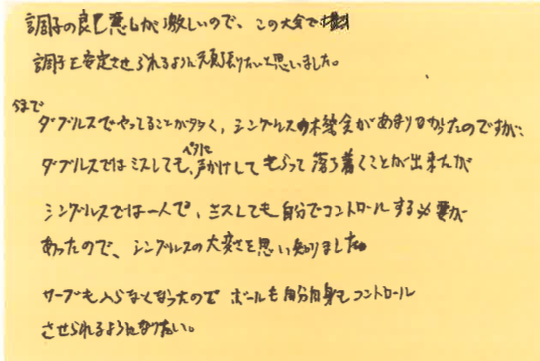 調子の良し悪しが激しいので、この大会で
調子を安定させられるように頑張りたいと思いました。
今まで
ダブルスでやってることが多く、シングルスの機会があまりなかったのですが、
ペアに
ダブルスではミスしても、声かけしてもらって落ち着くことが出来たが
シングルスでは一人で、ミスしても自分でコントロールする必要が
あったので、シングルスの大変さを思い知りました。
サーブも入らなくなったのでボールも自分自身もコントロール
させられるようになりたい。